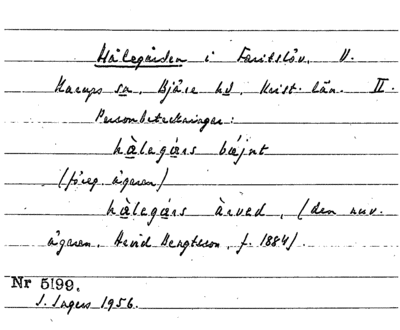 Hålegården i Faritslöv, V.
Karups sn, Bjäre hd, Krist. län. II.
Personbeteckningar:
hàlegárs bæjnt
(föreg. ägaren)
hàlegárs àrved, (den nuv.
ägaren, Arvid Bengtsson, f. 1884).
Nr 5199.
I. Ingers 1956.